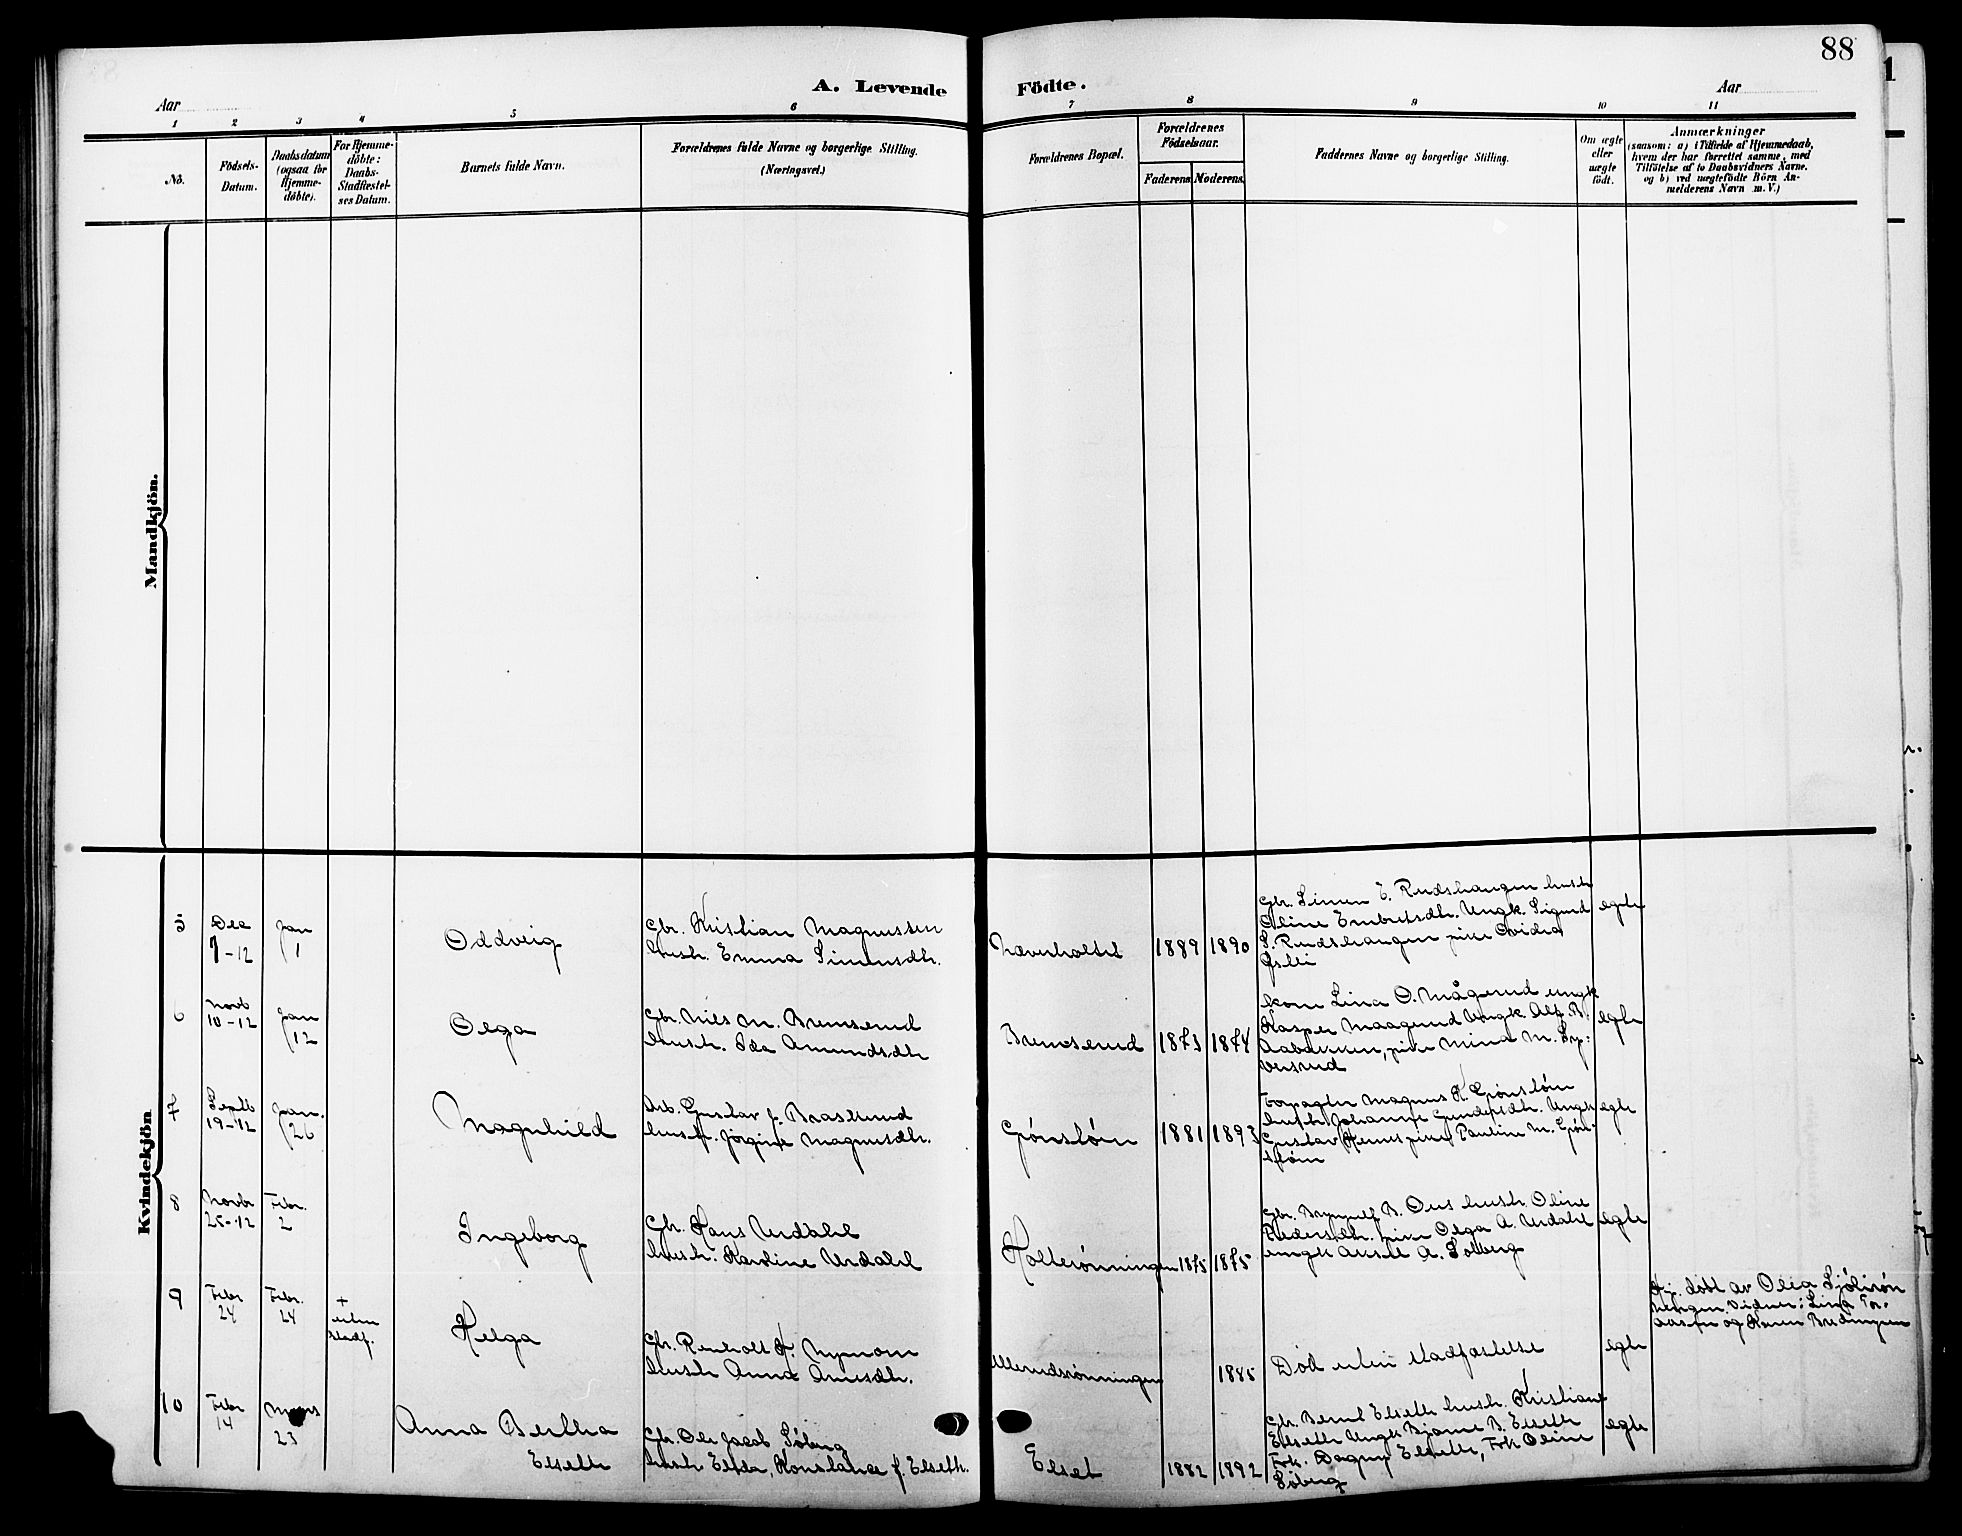 88
A. Levende Födte.
Aar
Aar
1 2 3 4 5 6 7 8 9 10 11
No.
Födsels-
Datum.
Daabsdatum
(ogsaa for
Hjemme-
döbte).
For Hjemme-
döbte:
Daabs-
Stadfæstel-
ses Datum.
Barnets fulde Navn.
Forældrenes fulde Navne og borgerlige Stilling.
(Næringsvei.)
Forældrenes Bopæl.
Forældrenes
Födselsaar.
Faderens. Moderens.
Faddernes Navne og borgerlige Stilling.
Om ægte
eller
uægte
födt.
Anmærkninger
(saasom: a) i Tilfælde af Hjemmedaab,
hvem der har forrettet samme, med
Tilföielse af to Daabsvidners Navne.
og b) ved uægtefödte Börn An-
melderens Navn m. V.)
Mandkjön.
Kvindekjön
5
Dec
1-12
Jan
1
Oddveig
Gbr. Kristian Magnussen
hustr. Emma Simensdtr.
Nævenholtet
1889
1890
Gbr. Simen E. Rudshaugen hustr
Oline Embretsdtr. Ungk. Sigurd
S. Rudshaugen pike
egte
6
Novb
10-12
Jan
12
Olga
Gbr. Nils M. Bremserud
hustr. Ida Amundsdtr
Bremserud
1873
1874
kone Lina O. Mågerud ungk
Kasper Maagerud Ungk Alf B.
Aabakken, pike Mina M.
egte
7
Septb
19-12
Jan.
26
Magnhild
Arb. Gustav J. Braskerud
hustr. Jörgine Magnusdtr.
Grönstöm
1881
1893
Forpagter Magnus K. Grönstöm
hustr Johanne Gundersdtr. Ungk
Gustav pike Pauline M. Grön-
stöm
egte
8
Novbr
25-12
Febr.
2
Ingeborg
Gbr. Hans Urdahl
hustr. Karoline Urdahl
Holterönningen
1875
1875
Gbr. Brynjulf B. Ous hustr. Oline
Pedersdtr. pike Olga A. Urdahl
ungk Aksel A. Solberg
egte
9
Febr
24
Febr.
24
+
uten
stadf.
Helga
Gbr. Renholt H. Nymoen
hustr Anna Arnesdtr.
Ullerudsrönningen
1885
Död uten stadfæstelse
egte
Hj. döbt av Olea Sjölirön
ningen. Vidner: Lina Tor-
aasen og Karen Bredingen
10
Febr
14
Mars
23
Anna Bertha
Elseth
Gbr. Ole Jacob Söberg
hustr Elida Konstance f. Elseth.
Elset
1882
1892
Gbr. Bernt Elseth hustr. Kristiane
Elseth Ungk Bjarne B. Elseth
Frk. Dagny Elseth, Frk Oline
Söberg
egte